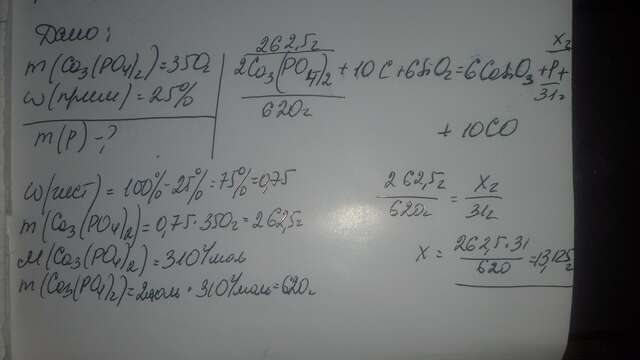 Дано:
m(Ca3(PO4)2)=350г
w(прим)=25%
m(P)-?
262,5г
xг
2Ca3(PO4)2+10C+6SiO2=6CaSiO3+P+
620г
31г
+10CO
w(чист)=100%-25%=75%=0,75
m(Ca3(PO4)2)=0,75·350г=262,5г
M(Ca3(PO4)2)=310г/моль
m(Ca3(PO4)2)=2моль·310г/моль=620г
262,5г/620г=xг/31г
x=262,5·31/620=13,125г